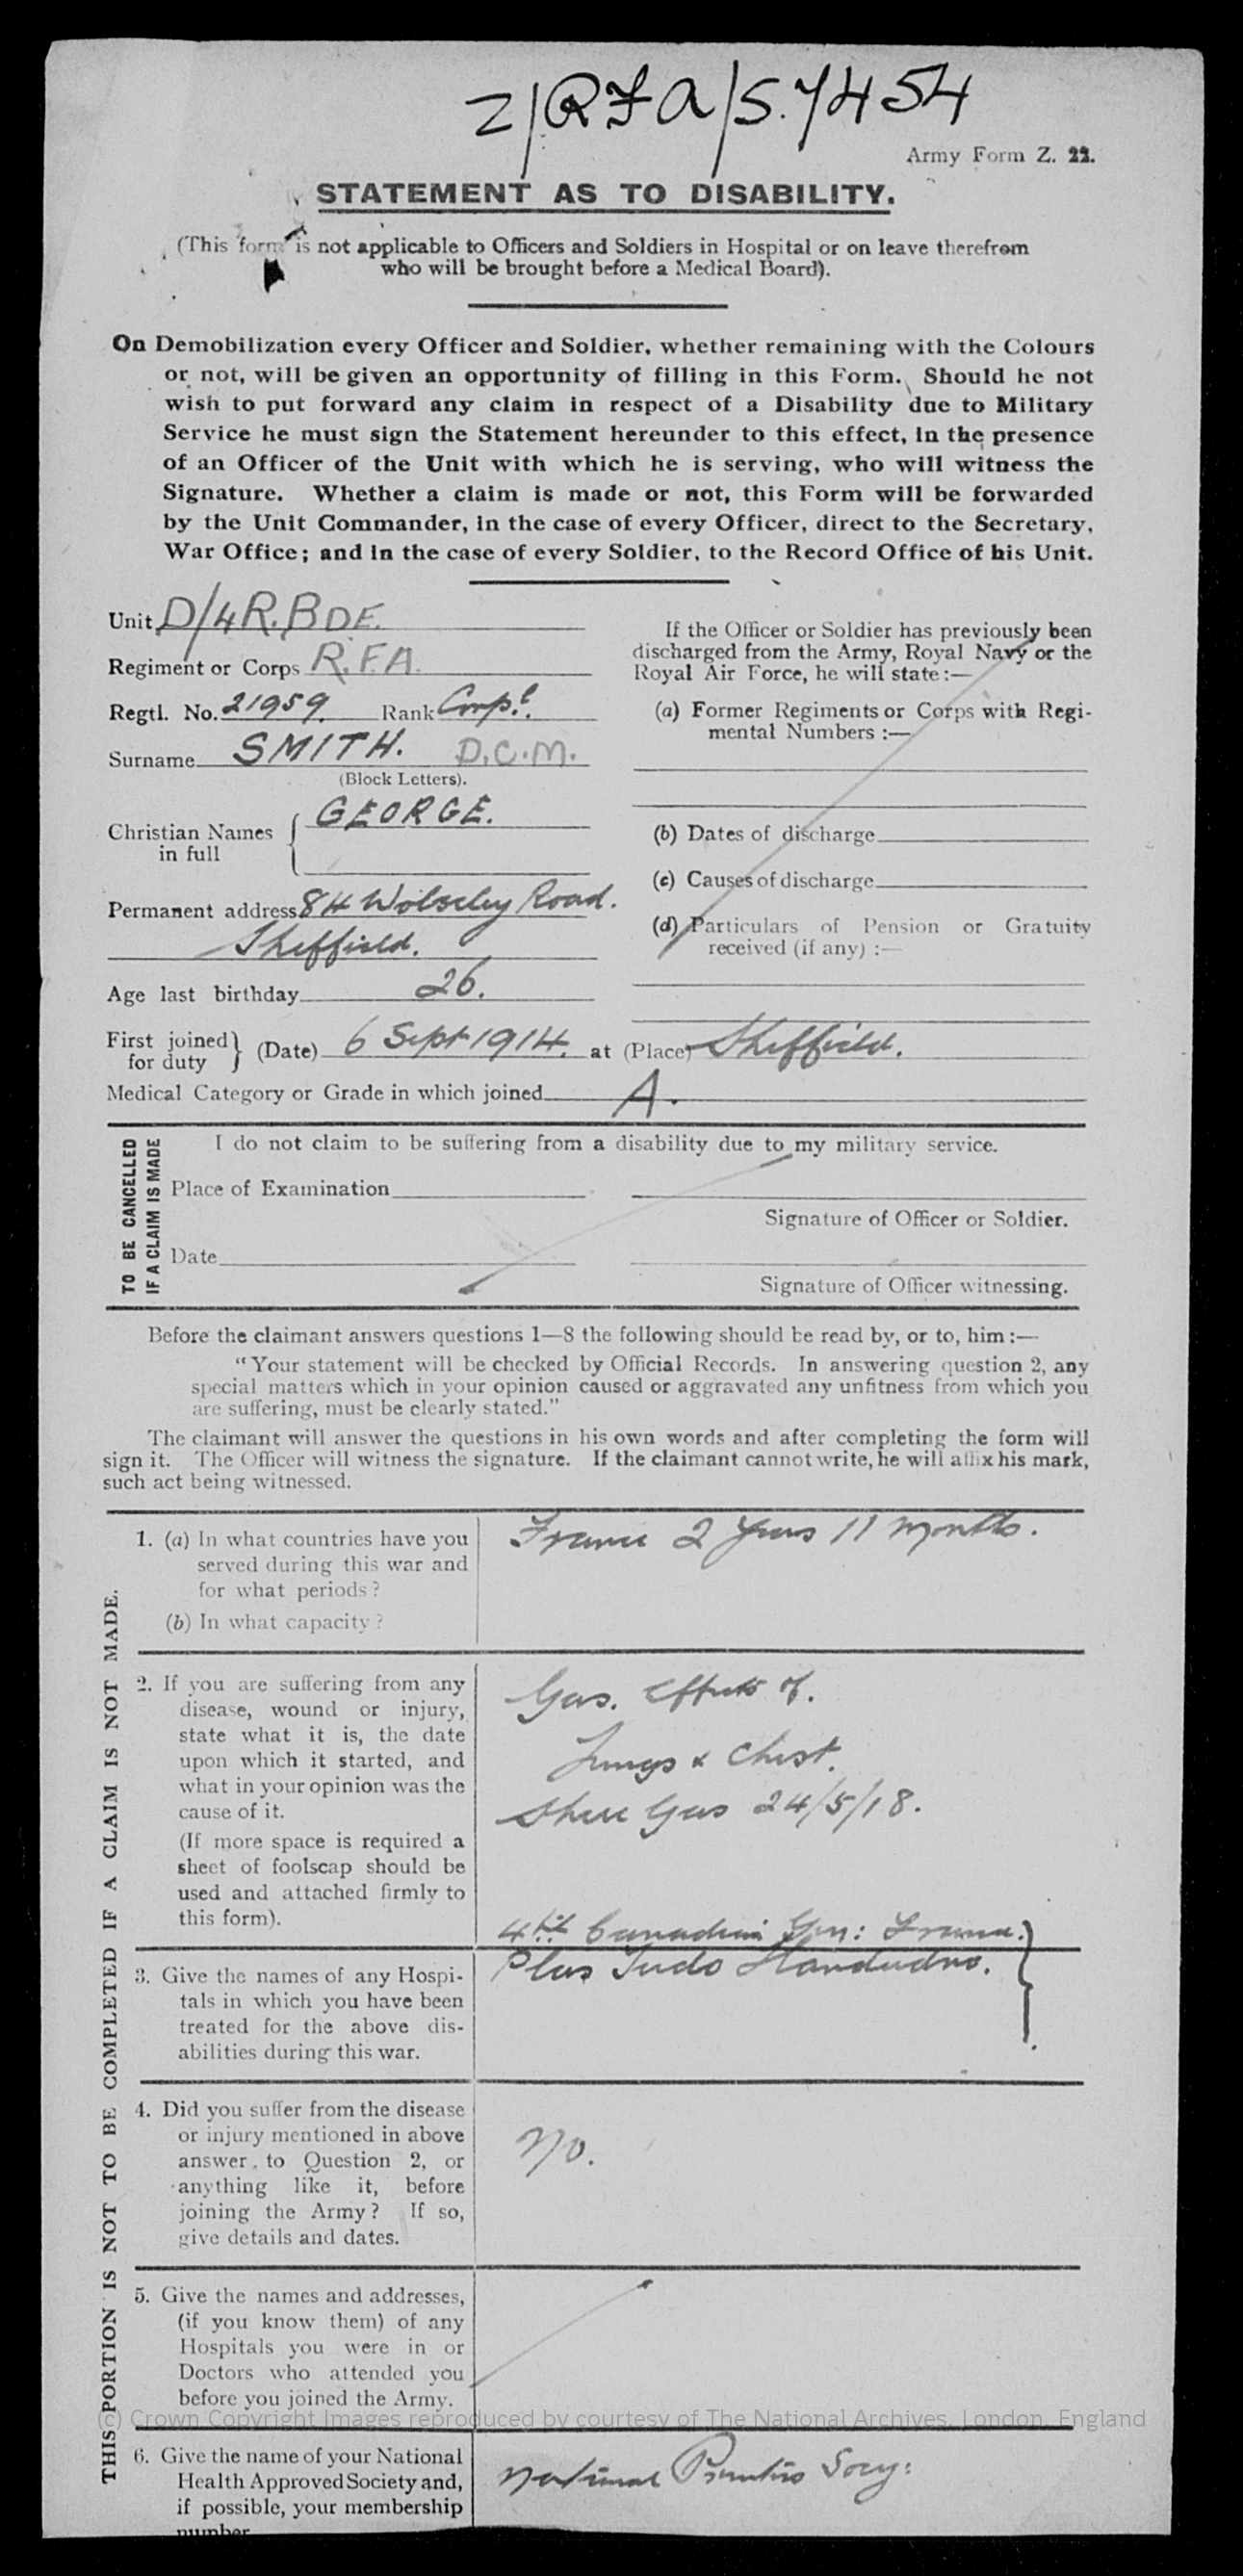 Z/RFA/S.7454
Army Form Z. 22.
STATEMENT AS TO DISABILITY.
(This form is not applicable to Officers and Soldiers in Hospital or on leave therefrom
who will be brought before a Medical Board).
On Demobilization every Officer and Soldier, whether remaining with the Colours
or not, will be given an opportunity of filling in this Form. Should he not
wish to put forward any claim in respect of a Disability due to Military
Service he must sign the Statement hereunder to this effect, in the presence
of an Officer of the Unit with which he is serving, who will witness the
Signature. Whether a claim is made or not, this Form will be forwarded
by the Unit Commander, in the case of every Officer, direct to the Secretary,
War Office; and in the case of every Soldier, to the Record Office of his Unit.
Unit D/4R.BDE.
Regiment or Corps R.F.A.
Regtl. No. 21959. Rank Corpl.
Surname SMITH. D.C.M.
(Block Letters).
Christian Names in full GEORGE.
Permanent address 84 Wolseley Road.
Sheffield.
Age last birthday 26.
If the Officer or Soldier has previously been
discharged from the Army, Royal Navy or the
Royal Air Force, he will state:—
(a) Former Regiments or Corps with Regi-
mental Numbers :—
(b) Dates of discharge
(c) Causes of discharge
(d) Particulars of Pension or Gratuity
received (if any) :—
First joined for duty } (Date) 6 Sept 1914. at (Place) Sheffield.
Medical Category or Grade in which joined A.
TO BE CANCELLED
IF A CLAIM IS MADE
I do not claim to be suffering from a disability due to my military service.
Place of Examination
Signature of Officer or Soldier.
Date
Signature of Officer witnessing.
Before the claimant answers questions 1—8 the following should be read by, or to, him :—
"Your statement will be checked by Official Records. In answering question 2, any
special matters which in your opinion caused or aggravated any unfitness from which you
are suffering, must be clearly stated."
The claimant will answer the questions in his own words and after completing the form will
sign it. The Officer will witness the signature. If the claimant cannot write, he will affix his mark,
such act being witnessed.
THIS PORTION IS NOT TO BE COMPLETED IF A CLAIM IS NOT MADE.
1. (a) In what countries have you
served during this war and
for what periods?
(b) In what capacity?
France 2 years 11 months.
2. If you are suffering from any
disease, wound or injury,
state what it is, the date
upon which it started, and
what in your opinion was the
cause of it.
(If more space is required a
sheet of foolscap should be
used and attached firmly to
this form).
Gas. Effects of.
Lungs & Chest.
Shell Gas 24/5/18.
3. Give the names of any Hospi-
tals in which you have been
treated for the above dis-
abilities during this war.
4th Canadian Gen: France.
Plas Tudo Llandudno.
4. Did you suffer from the disease
or injury mentioned in above
answer to Question 2, or
anything like it, before
joining the Army? If so,
give details and dates.
No.
5. Give the names and addresses,
(if you know them) of any
Hospitals you were in or
Doctors who attended you
before you joined the Army.
(c) Crown Copyright Images reproduced by courtesy of The National Archives, London, England
6. Give the name of your National
Health Approved Society and,
if possible, your membership
number
National Socy: